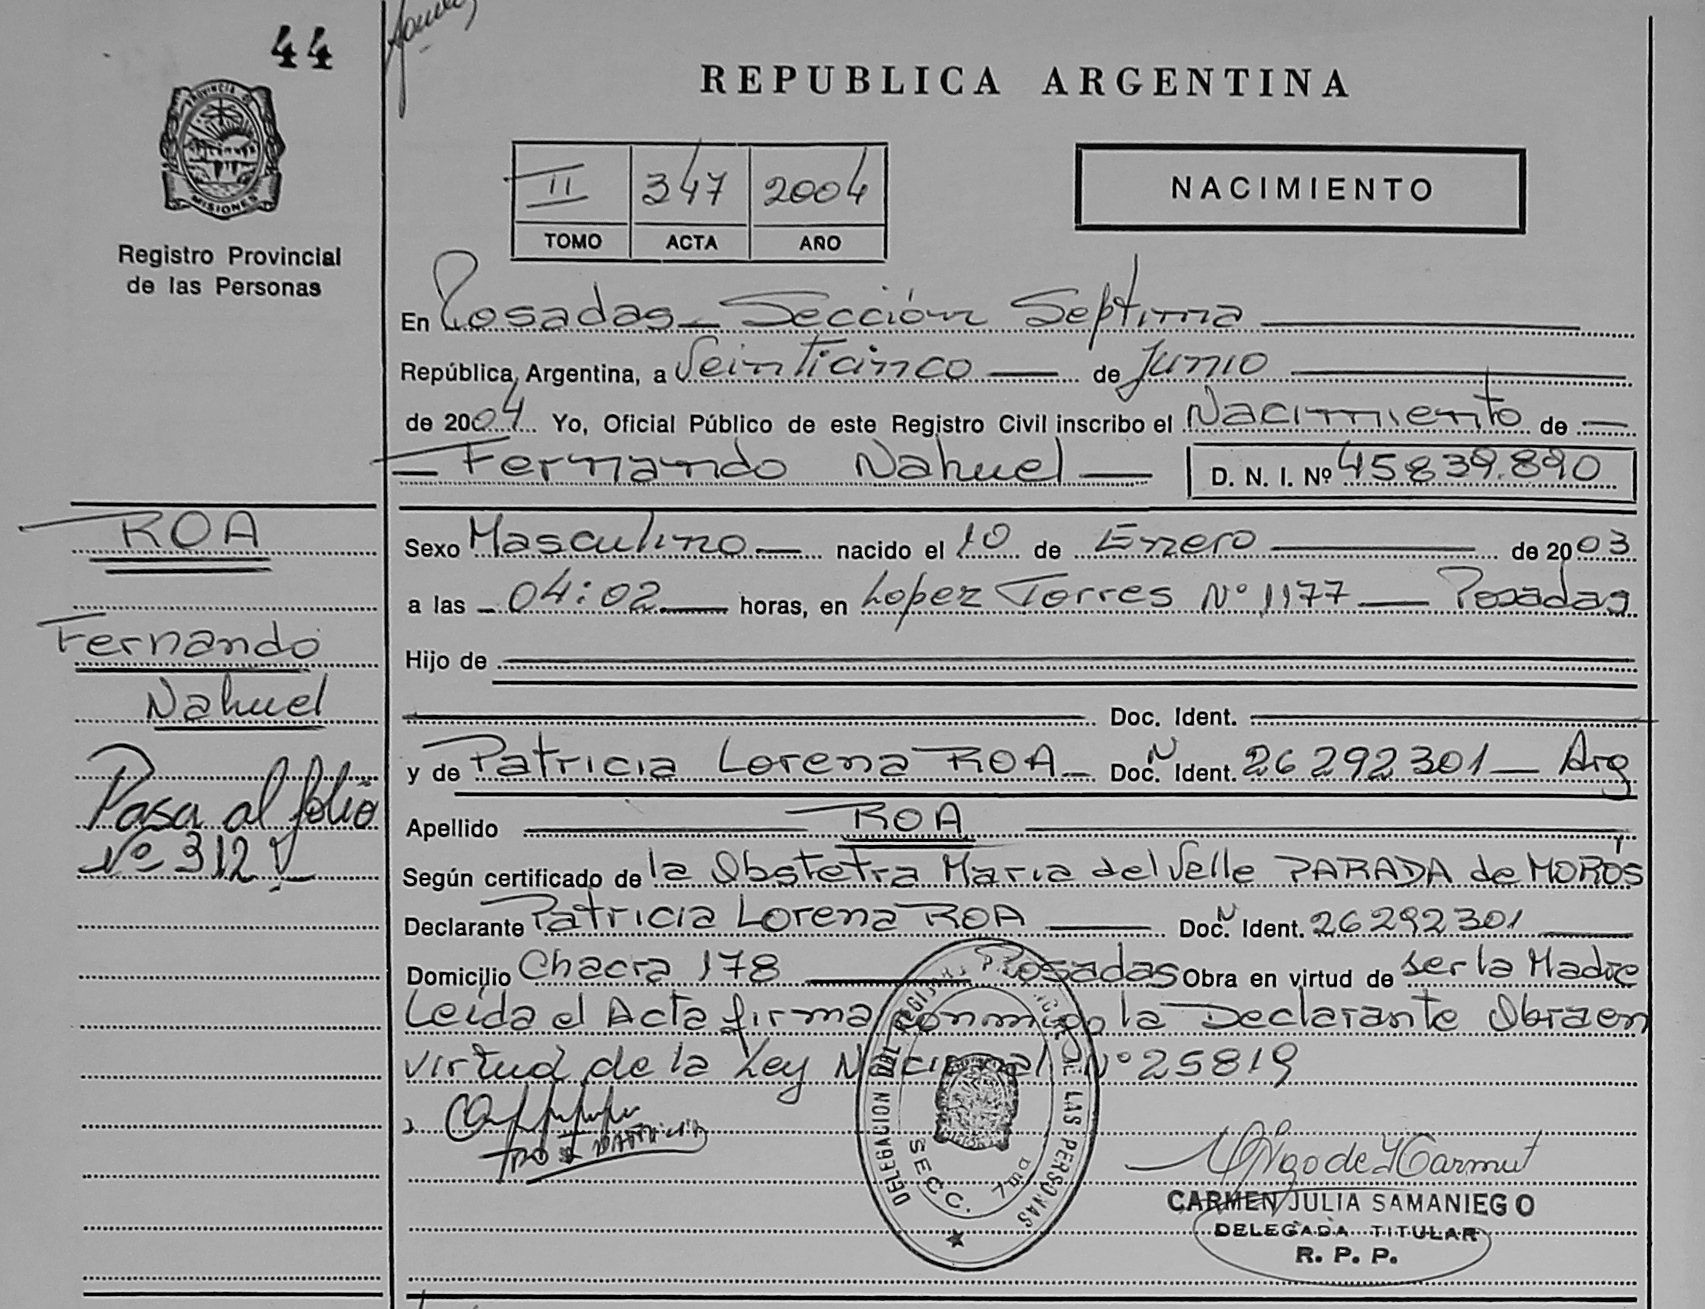 44
REPUBLICA ARGENTINA
PROVINCIA DE
MISIONES
Registro Provincial
de las Personas
II 347 2004
TOMO ACTA AÑO
NACIMIENTO
En Posadas Sección Septima
República Argentina, a Veinticinco de Junio
de 2004 Yo, Oficial Público de este Registro Civil inscribo el Nacimiento de
Fernando Nahuel D. N. I. Nº 45839.890
ROA
Fernando
Nahuel
Pasa al folio
Nº 312
Sexo Masculino nacido el 10 de Enero de 2003
a las 04:02 horas, en Lopez Torres Nº 1177 Posadas
Hijo de
Doc. Ident.
y de Patricia Lorena ROA Doc. N Ident. 26292301 Arg
Apellido ROA
Según certificado de la Obstetra Maria del Valle PARADA de MOROS
Declarante Patricia Lorena ROA Doc. N Ident. 26292301
Domicilio Chacra 178 Posadas Obra en virtud de ser la Madre
Leida el Acta firma conmigo la Declarante Obra en
virtud de la Ley Nacional Nº 25819
DELEGACION DEL REGISTRO DE LAS PERSONAS
SECC. 7ma
CARMEN JULIA SAMANIEGO
DELEGADA TITULAR
R. P. P.